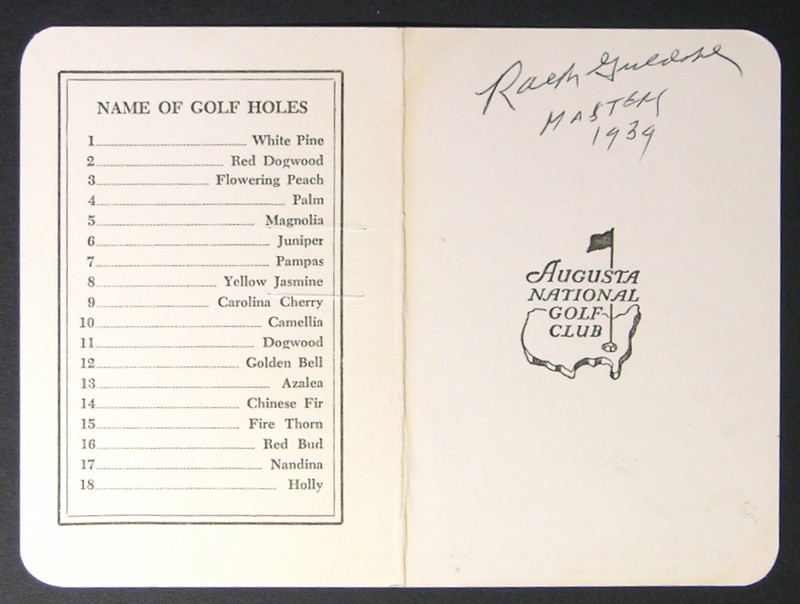 NAME OF GOLF HOLES
1 White Pine
2 Red Dogwood
3 Flowering Peach
4 Palm
5 Magnolia
6 Juniper
7 Pampas
8 Yellow Jasmine
9 Carolina Cherry
10 Camellia
11 Dogwood
12 Golden Bell
13 Azalea
14 Chinese Fir
15 Fire Thorn
16 Red Bud
17 Nandina
18 Holly
Ralph Guldahl
MASTERS
1939
AUGUSTA
NATIONAL
GOLF
CLUB